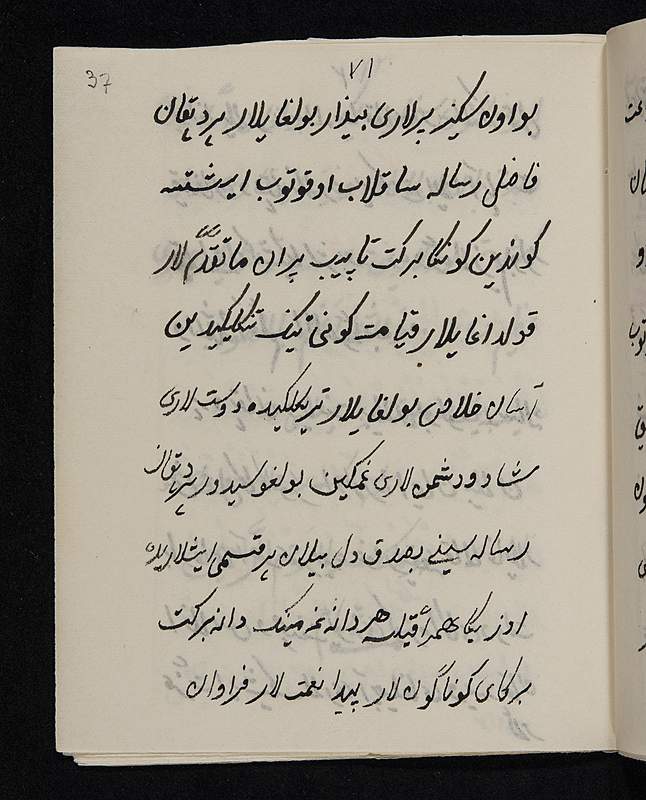 37
٧١
بو اون سکیز پیرلاری بیذار بولغایلار هر دیقان
فاضلی رساله ساقلاب اوقوتوب ایشتسه
کوندین کونکا برکت تاپیب پیران ماتقدّم لار
قولداغایلار قیامت کونی نینک تنکلیکیدین
آسان خلاص بولغایلار تیریکلیکیده دوست لاری
شاد و دشمن لاری غمکین بولغوسیدور هر دیقان
رساله سینی بصدق دل بیلان هر قسمی ایشلاریده
اوزیکا همراه قیلسه هر دانه غه مینک دانه برکت
برکای کوناگون لار پیدا نعمت لار فراوان